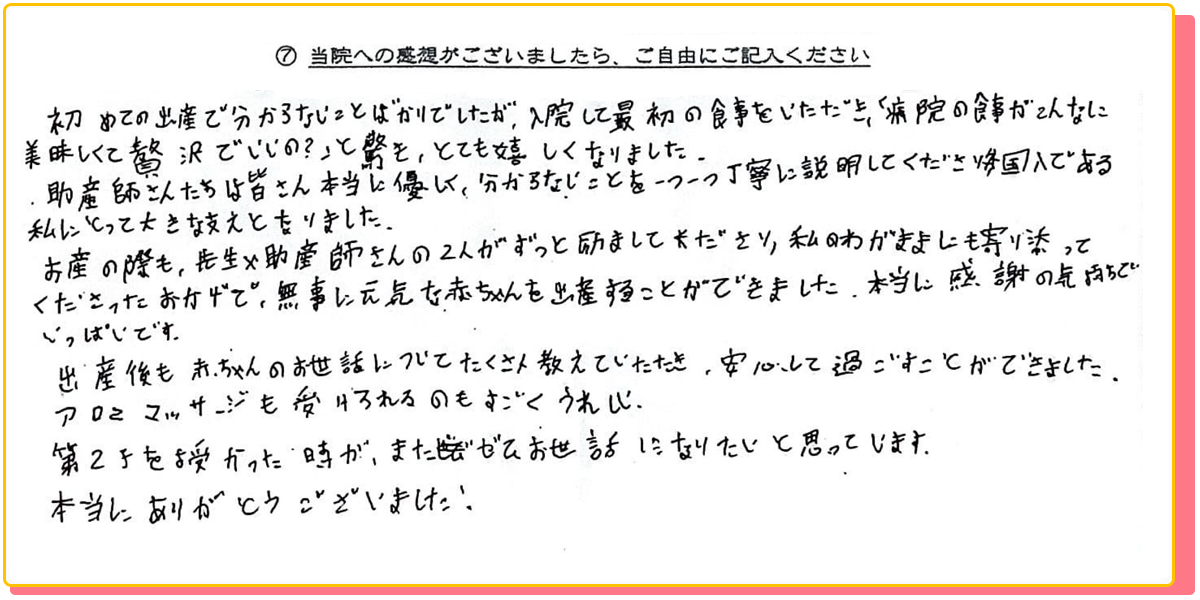 ⑦ 当院への感想がございましたら、ご自由にご記入ください
初めての出産で分からないことばかりでしたが、入院して最初の食事をいただき、「病院の食事がこんなに
美味しくて贅沢でいいの?」と驚き、とても嬉しくなりました。
助産師さんたちは皆さん本当に優しく、分からないことを一つ一つ丁寧に説明してくださり外国人である
私にとって大きな支えとなりました。
お産の際も、先生や助産師さんの2人がずっと励ましてくださり、私のわがままにも寄り添って
くださったおかげで、無事に元気な赤ちゃんを出産することができました。本当に感謝の気持ちで
いっぱいです。
出産後も赤ちゃんのお世話についてたくさん教えていただき、安心して過ごすことができました。
アロママッサージも受けられるのもすごくうれしい。
第2子を授かった時が、またぜひお世話になりたいと思っています。
本当にありがとうございました!